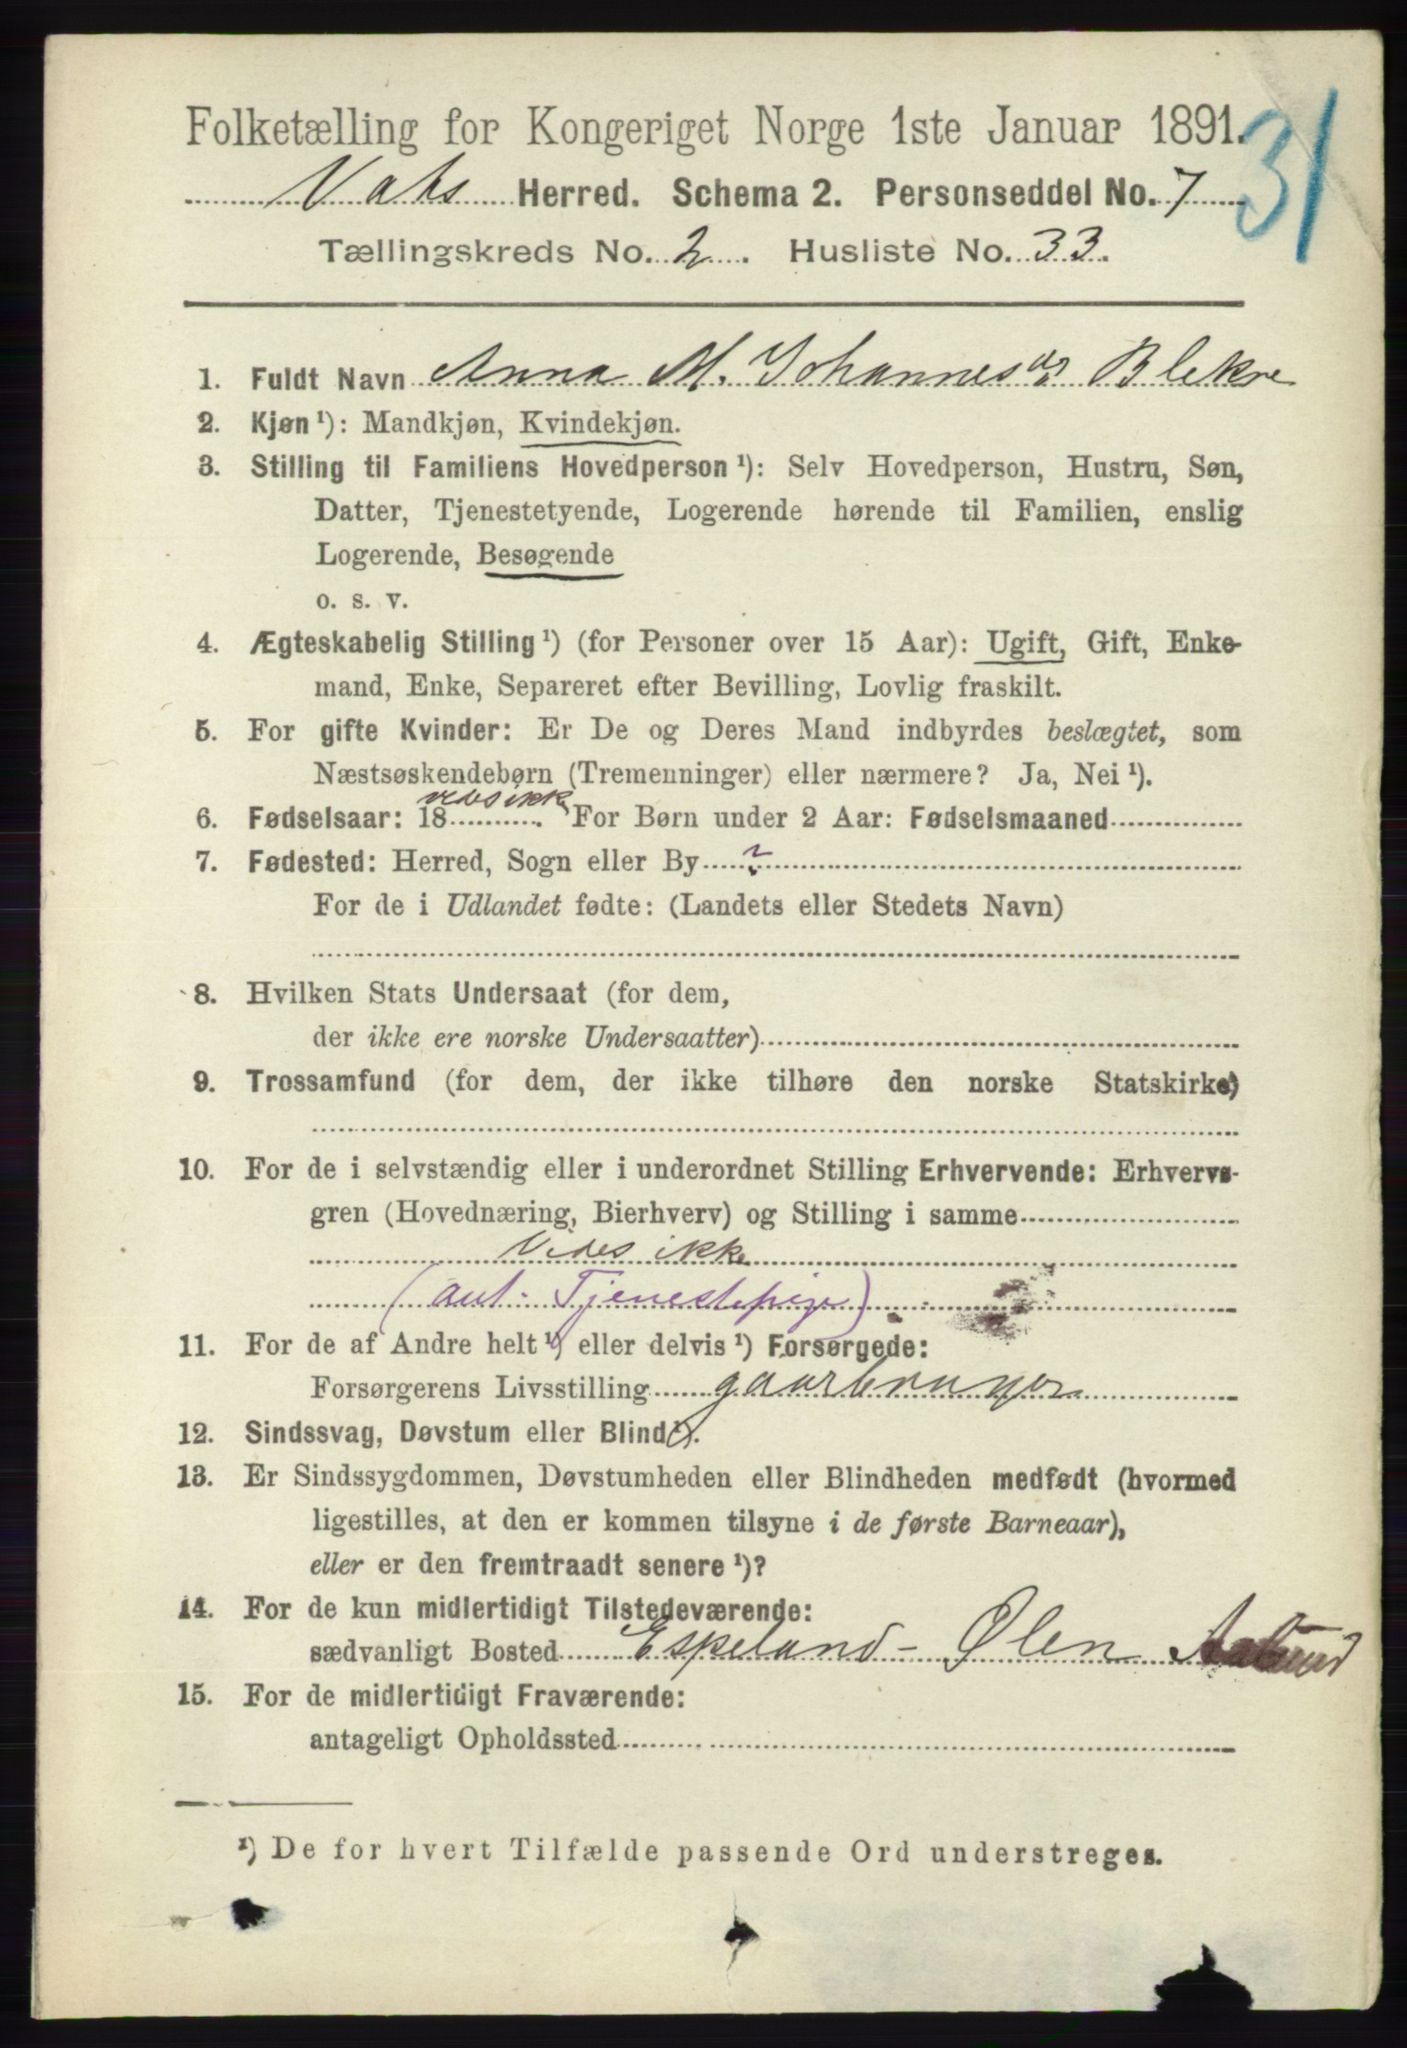 Folketælling for Kongeriget Norge 1ste Januar 1891.
31
Vats Herred. Schema 2. Personseddel No. 7
Tællingskreds No. 2. Husliste No. 33.
1. Fuldt Navn Anna M. Johannesdr Blekre
2. Kjøn ¹): Mandkjøn, Kvindekjøn.
3. Stilling til Familiens Hovedperson ¹): Selv Hovedperson, Hustru, Søn,
Datter, Tjenestetyende, Logerende hørende til Familien, enslig
Logerende, Besøgende
o. s. v.
4. Ægteskabelig Stilling ¹) (for Personer over 15 Aar): Ugift, Gift, Enke-
mand, Enke, Separeret efter Bevilling, Lovlig fraskilt.
5. For gifte Kvinder: Er De og Deres Mand indbyrdes beslægtet, som
Næstsøskendebørn (Tremenninger) eller nærmere? Ja, Nei ¹).
6. Fødselsaar: 18 vides ikke. For Børn under 2 Aar: Fødselsmaaned
7. Fødested: Herred, Sogn eller By ?
For de i Udlandet fødte: (Landets eller Stedets Navn)
8. Hvilken Stats Undersaat (for dem,
der ikke ere norske Undersaatter)
9. Trossamfund (for dem, der ikke tilhøre den norske Statskirke)
10. For de i selvstændig eller i underordnet Stilling Erhvervende: Erhvervs-
gren (Hovednæring, Bierhverv) og Stilling i samme
Vides ikke
(ant. Tjenestepige)
11. For de af Andre helt ¹) eller delvis ¹) Forsørgede:
Forsørgerens Livsstilling gaarbruger
12. Sindssvag, Døvstum eller Blind ¹).
13. Er Sindssygdommen, Døvstumheden eller Blindheden medfødt (hvormed
ligestilles, at den er kommen tilsyne i de første Barneaar),
eller er den fremtraadt senere ¹)?
14. For de kun midlertidigt Tilstedeværende:
sædvanligt Bosted Espeland - Ølen
15. For de midlertidigt Fraværende:
antageligt Opholdssted
¹) De for hvert Tilfælde passende Ord understreges.